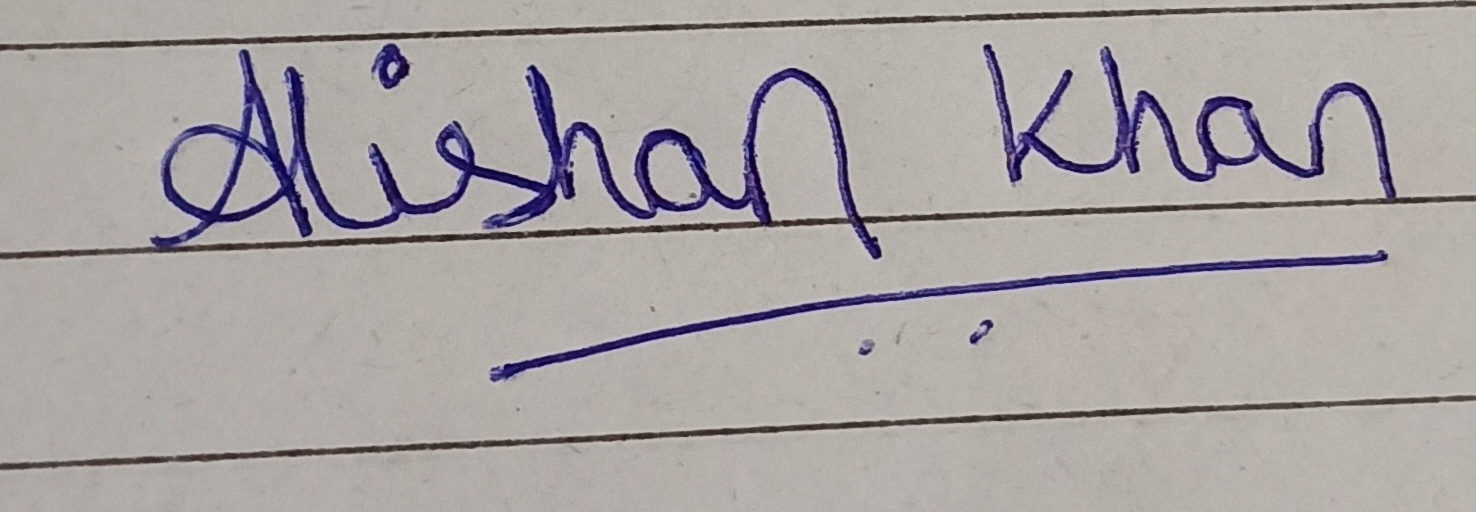 Alishan Khan